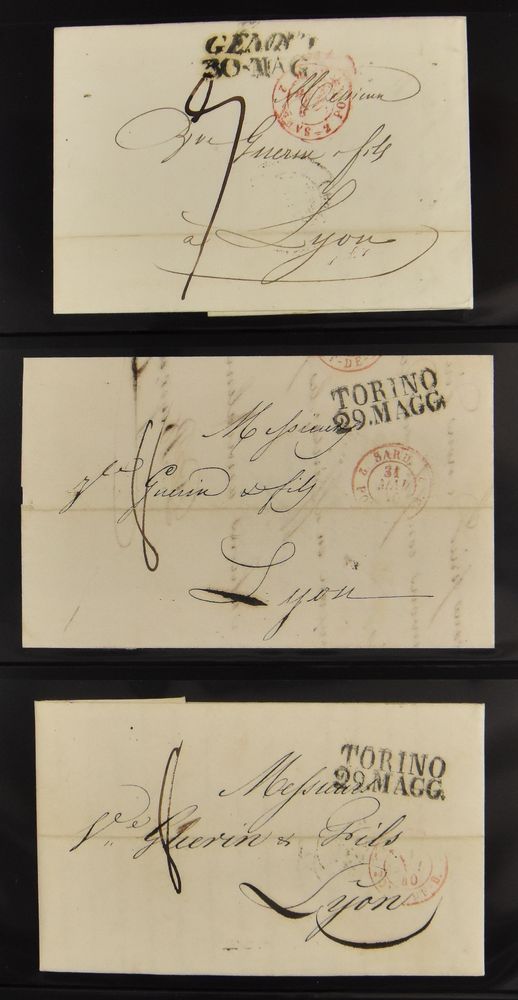 GENOVA
30-MAG.
Messieurs
Vve Guerin & fils
à Lyon
TORINO
29.MAGG.
Messieurs
Vve Guerin & fils
2 SARD.
31
Lyon
TORINO
29.MAGG.
Messieurs
Ve Guerin & Fils
Lyon